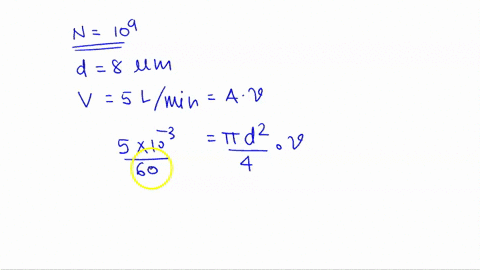 N = 10⁹
d = 8 um
V = 5 L/min = A·v
5 × 10⁻³ / 60 = πd² / 4 · v